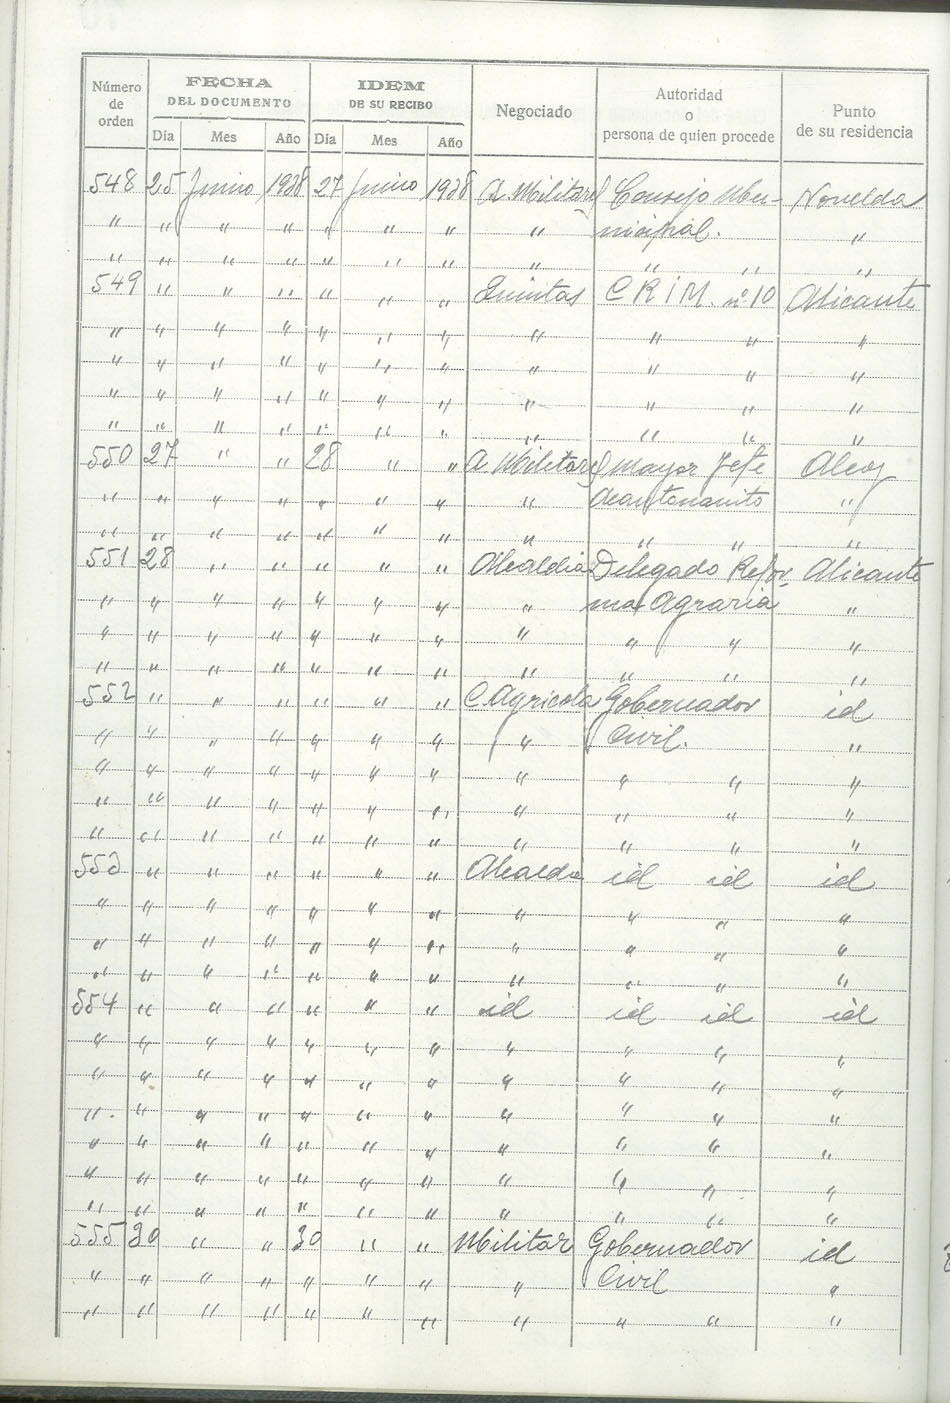 Número de orden | FECHA DEL DOCUMENTO | IDEM DE SU RECIBO | Negociado | Autoridad o persona de quien procede | Punto de su residencia
Día Mes Año Día Mes Año
548 25 Junio 1938 27 Junio 1938 A. Militares Consejo Mu- Novelda
" " " " " " " " nicipal. "
" " " " " " " " " " "
549 " " " " " " Quintas C R I M. nº 10 Alicante
" " " " " " " " " " "
" " " " " " " " " " "
" " " " " " " " " " "
" " " " " " " " " " "
550 27 " " 28 " " A Militares Mayor Jefe Alcoy
" " " " " " " " "
" " " " " " " " " " "
551 28 " " " " " Alcaldia Delegado Refor- Alicante
" " " " " " " " ma Agraria "
" " " " " " " " " " "
" " " " " " " " " " "
552 " " " " " " C. Agricola Gobernador id
" " " " " " " " Civil. "
" " " " " " " " " " "
" " " " " " " " " " "
" " " " " " " " " " "
553 " " " " " " Alcaldia id id id
" " " " " " " " " " "
" " " " " " " " " " "
" " " " " " " " " " "
554 " " " " " " id id id id
" " " " " " " " " " "
" " " " " " " " " " "
" " " " " " " " " " "
" " " " " " " " " " "
" " " " " " " " " " "
" " " " " " " " " " "
555 30 " " 30 " " Militar Gobernador id
" " " " " " " " Civil "
" " " " " " " " " " "